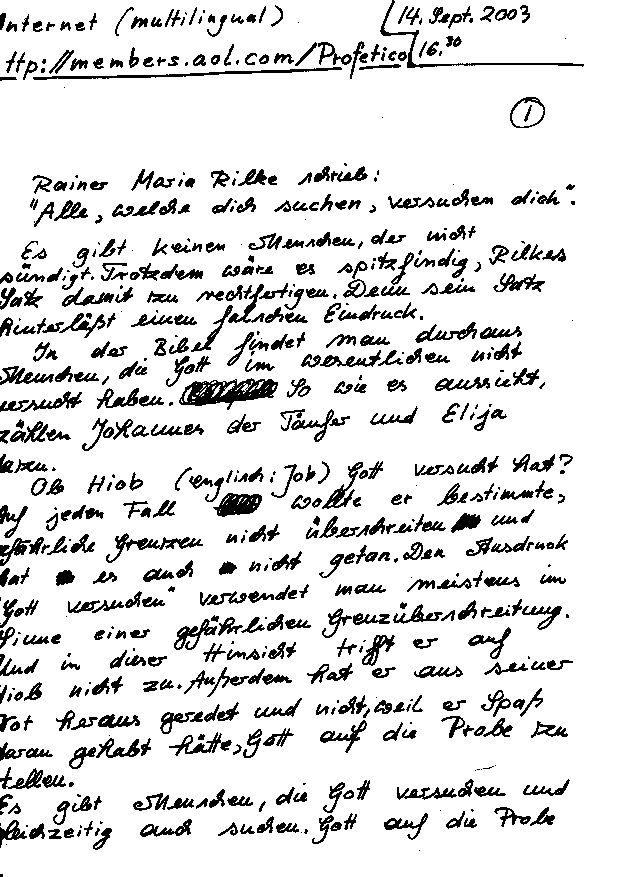 Internet (multilingual)
14. Sept. 2003
ttp://members.aol.com/Profetico
16.30
1
Rainer Maria Rilke schrieb:
"Alle, welche dich suchen, versuchen dich".
Es gibt keinen Menschen, der nicht
sündigt. Trotzdem wäre es spitzfindig, Rilkes
Satz damit zu rechtfertigen. Denn sein Satz
hinterläßt einen falschen Eindruck.
In der Bibel findet man durchaus
Menschen, die Gott im wesentlichen nicht
versucht haben. So wie es aussieht,
zählen Johannes der Täufer und Elija
dazu.
Ob Hiob (englisch: Job) Gott versucht hat?
Auf jeden Fall wollte er bestimmte,
gefährliche Grenzen nicht überschreiten und
hat es auch nicht getan. Den Ausdruck
"Gott versuchen" verwendet man meistens im
Sinne einer gefährlichen Grenzüberschreitung.
Und in dieser Hinsicht trifft er auf
Hiob nicht zu. Außerdem hat er aus seiner
Not heraus geredet und nicht, weil er Spaß
daran gehabt hätte, Gott auf die Probe zu
stellen.
Es gibt Menschen, die Gott versuchen und
gleichzeitig auch suchen. Gott auf die Probe